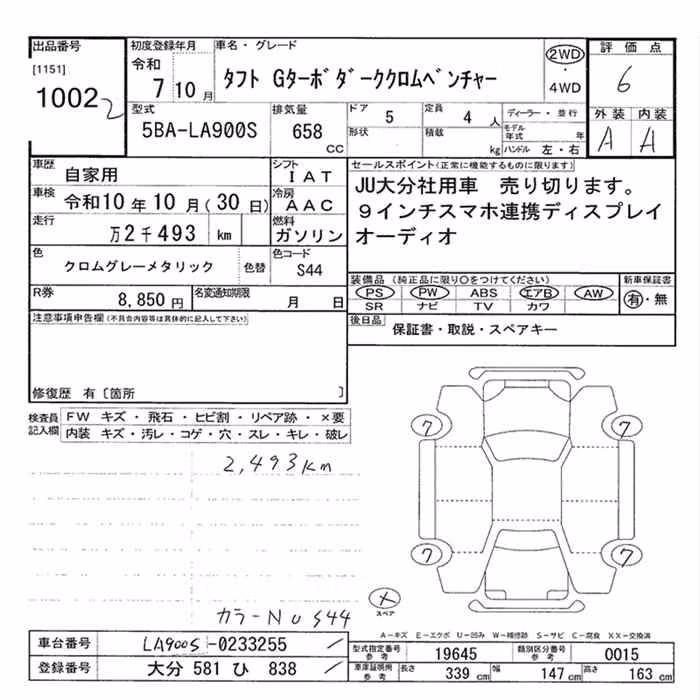 出品番号 初度登録年月 車名・グレード 評価点
[1151] 令和 2WD
10022 7 10月 タフト Gターボダーククロムベンチャー ・ 6
4WD
型式 排気量 ドア 定員 ディーラー・並行 外装 内装
5BA-LA900S 658 5 4 人 モデル年式 年 A A
CC 形状 積載 kg ハンドル 左・右
車歴 自家用 シフト IAT セールスポイント(正常に機能するものに限ります)
車検 令和10年10月(30日) 冷房 AAC JU大分社用車 売り切ります。
走行 万2千493 km 燃料 ガソリン 9インチスマホ連携ディスプレイ
オーディオ
色 クロムグレーメタリック 色替 色コード S44
装備品(純正品に限り○をつけてください) 新車保証書
R券 8,850円 名変通知期限 月 日 PS PW ABS エアB AW 有・無
SR ナビ TV カワ
注意事項申告欄(不具合内容等は具体的に記入して下さい) 後日品 保証書・取説・スペアキー
修復歴 有〔箇所 〕
検査員記入欄 FW キズ・飛石・ヒビ割・リペア跡・×要
内装 キズ・汚レ・コゲ・穴・スレ・キレ・破レ
7 7
2,493km
7 7
×
スペア
カラーNo S44
A-キズ E-エクボ U-凹み W-補修跡 S-サビ C-腐食 XX-交換済
車台番号 LA900S-0233255 型式指定番号 参考 19645 類別区分番号 参考 0015
登録番号 大分 581 ひ 838 車庫証明用 参考 長さ 339 cm 幅 147 cm 高さ 163 cm